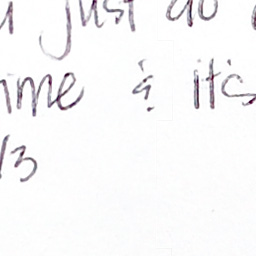 just do
ime & it's
/3